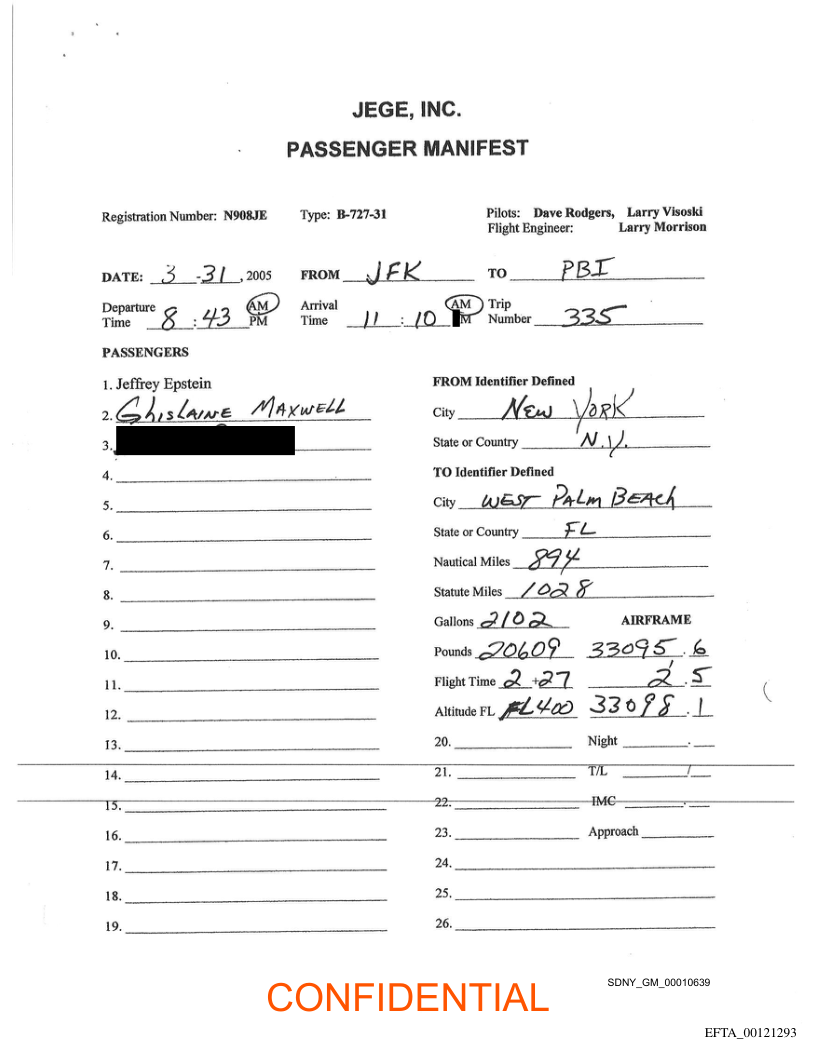 JEGE, INC.
PASSENGER MANIFEST
Registration Number: N908JE Type: B-727-31 Pilots: Dave Rodgers, Larry Visoski
Flight Engineer: Larry Morrison
DATE: 3 -31, 2005 FROM JFK TO PBI
Departure Time 8 : 43 AM PM Arrival Time 11 : 10 AM M Trip Number 335
PASSENGERS
1. Jeffrey Epstein
2. GhisLAINE MAXWELL
3.
4.
5.
6.
7.
8.
9.
10.
11.
12.
13.
14.
15.
16.
17.
18.
19.
FROM Identifier Defined
City NEW YORK
State or Country N.Y.
TO Identifier Defined
City WEST PALM BEACH
State or Country FL
Nautical Miles 894
Statute Miles 1028
Gallons 2102 AIRFRAME
Pounds 20609 33095.6
Flight Time 2 +27 2.5
Altitude FL FL400 33098.1
20. Night .
21. T/L /
22. IMC .
23. Approach
24.
25.
26.
CONFIDENTIAL
SDNY_GM_00010639
EFTA_00121293